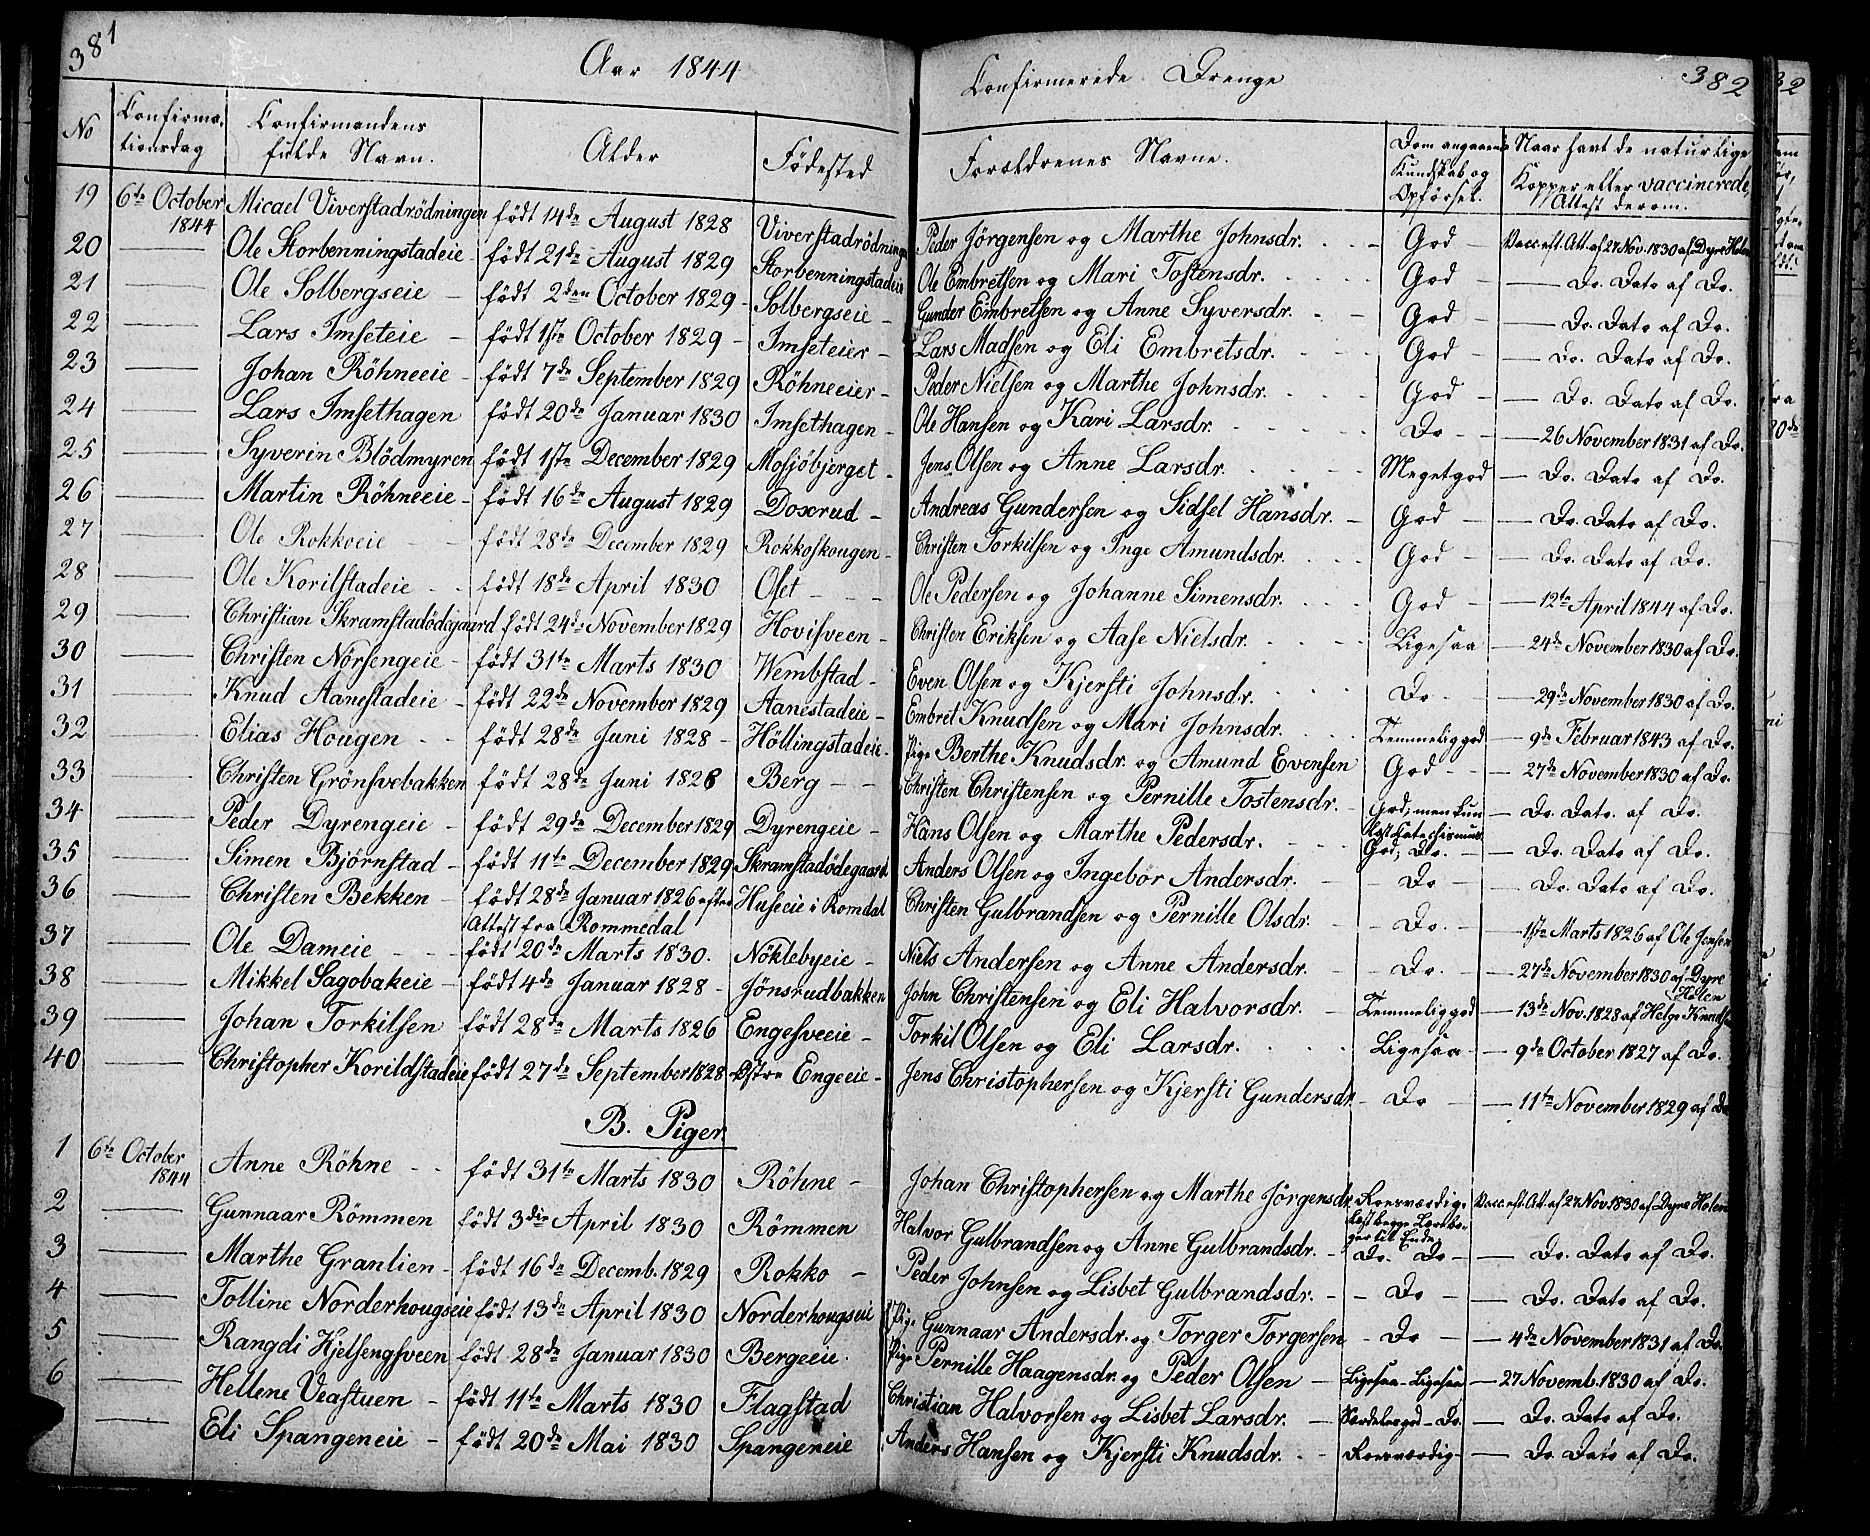 381 Aar 1844 Confirmerede Drenge 382
No Confirmationsdag Confirmandens fulde Navn. Alder Födested Forældrenes Navne. Dom angaaende Kundskab og Opförsel. Naar havt de naturlige Kopper eller vaccinerede, Attest derom.
19 6te October 1844 Micael Viverstadrödningen födt 14de August 1828 Viverstadrödningen Peder Jörgensen og Marthe Johnsdr. God Vacc. eft. Att. af 27 Nov. 1830 af Dyre Holen
20 — Ole Storbenningstadeie födt 21de August 1829 Storbenningstadeie Ole Embretsen og Mari Tostensdr. God — Do. Dato af Do.
21 — Ole Solbergseie födt 2den October 1829 Solbergseie Gunder Embretsen og Anne Syversdr. God — Do. Dato af Do.
22 — Lars Imseteie födt 1ste October 1829 Imseteier Lars Madsen og Eli Embretsdr. God — Do. Dato af Do.
23 — Johan Röhneeie födt 7de September 1829 Röhneeier Peder Nielsen og Marthe Johnsdr. God — Do. Dato af Do.
24 — Lars Imsethagen födt 20de Januar 1830 Imsethagen Ole Hansen og Kari Larsdr. Do — 26 November 1831 af Do.
25 — Syverin Blödmyren födt 1ste December 1829 Mosjöbjerget Jens Olsen og Anne Larsdr. Megetgod — Do. Dato af Do.
26 — Martin Röhneeie födt 16de August 1829 Doxrud Andreas Gundersen og Sidsel Hansdr. God — Do. Dato af Do.
27 — Ole Rokkoeie födt 28de December 1829 Rokkoskougen Christen Torkilsen og Inge Amundsdr. God — Do. Dato af Do.
28 — Ole Korilstadeie födt 18de April 1830 Olset Ole Pedersen og Johanne Simensdr. God — 12te April 1844 af Do.
29 — Christian Skramstadödegaard födt 24de November 1829 Hovisveen Christen Eriksen og Aase Nielsdr. Ligesaa — 24de November 1830 af Do.
30 — Christen Nörsengeie födt 31te Marts 1830 Wembstad Even Olsen og Kjersti Johnsdr. Do — 29de November 1830 af Do.
31 — Knud Aanestadeie födt 22de November 1829 Aanestadeie Embret Knudsen og Mari Johnsdr. Temmeliggod — 9de Februar 1843 af Do.
32 — Elias Hougen födt 28de Juni 1828 Höllingstadeie Pige Berthe Knudsdr. og Amund Evensen God — 27de November 1830 af Do.
33 — Christen Grönsvebakken födt 28de Juni 1828 Berg Christen Christensen og Pernille Tostensdr. God; men kun læst Catechismus — Do. Dato. af Do.
34 — Peder Dyrengeie födt 29de December 1829 Dyrengeie Hans Olsen og Marthe Pedersdr. God; Do. — Do. Dato af Do.
35 — Simen Bjørnstad födt 11te December 1829 Skramstadödegaard Anders Olsen og Ingebör Andersdr. Do — Do. Dato af Do.
36 — Christen Bekken födt 28de Januar 1826 efter Attest fra Rommedal Huseeie i Romdal Christen Gulbrandsen og Pernille Olsdr. Do. — 1ste Marts 1826 af Ole Jensen
37 — Ole Dameie födt 20de Marts 1830. Nöklebyeie Niels Andersen og Anne Andersdr. Do. — 27de November 1830 af Dyre Holen
38 — Mikkel Sagobakeie födt 4de Januar 1828 Jönsrudbakken John Christensen og Eli Halvorsdr. Temmeliggod — 13de Nov. 1828 af Helge Knudsen
39 — Johan Torkilsen födt 28de Marts 1826 Engesveeie Torkil Olsen og Eli Larsdr. Ligesaa — 9de October 1827 af Do.
40 — Christopher Korildstadeie födt 27de September 1828 Østre Engeeie Jens Christophersen og Kjersti Gundersdr. Do — 11te November 1829 af Do
B. Piger
1 6te October 1844 Anne Röhne födt 31te Marts 1830 Röhne Johan Christophersen og Marthe Jörgensdr. Roesværdig. Læst begge Lærebøger til Ende. Vacc. eft. Att. af 27 Nov. 1830 af Dyre Holen
2 — Gunnaar Römmen födt 3die April 1830 Römmen Halvor Gulbrandsen og Anne Gulbrandsdr. Do. Do — Do. Dato af Do.
3 — Marthe Granlien födt 16de Decemb. 1829 Rokko Peder Johnsen og Lisbet Gulbrandsdr. Do — Do. Dato af Do.
4 — Tolline Norderhougseie födt 13de April 1830 Norderhougseie Pige Gunnaar Andersdr. og Torger Torgersen Do — 4de November 1831 af Do.
5 — Rangdi Hjelsengsveen födt 28de Januar 1830 Bergeeie. Pige Pernille Haagensdr. og Peder Olsen Ligesaa — Ligesaa — 27 Novemb. 1830 af Do.
6 — Hellene Veastuen födt 11te Marts 1830 Flagstad Christian Halvorsen og Lisbet Larsdr. Særdelesgod — Do. — Do. Dato af Do.
— Eli Spangeneie födt 20de Mai 1830 Spangeneie Anders Hansen og Kjersti Knudsdr. Roesværdig — Do. Dato af Do.